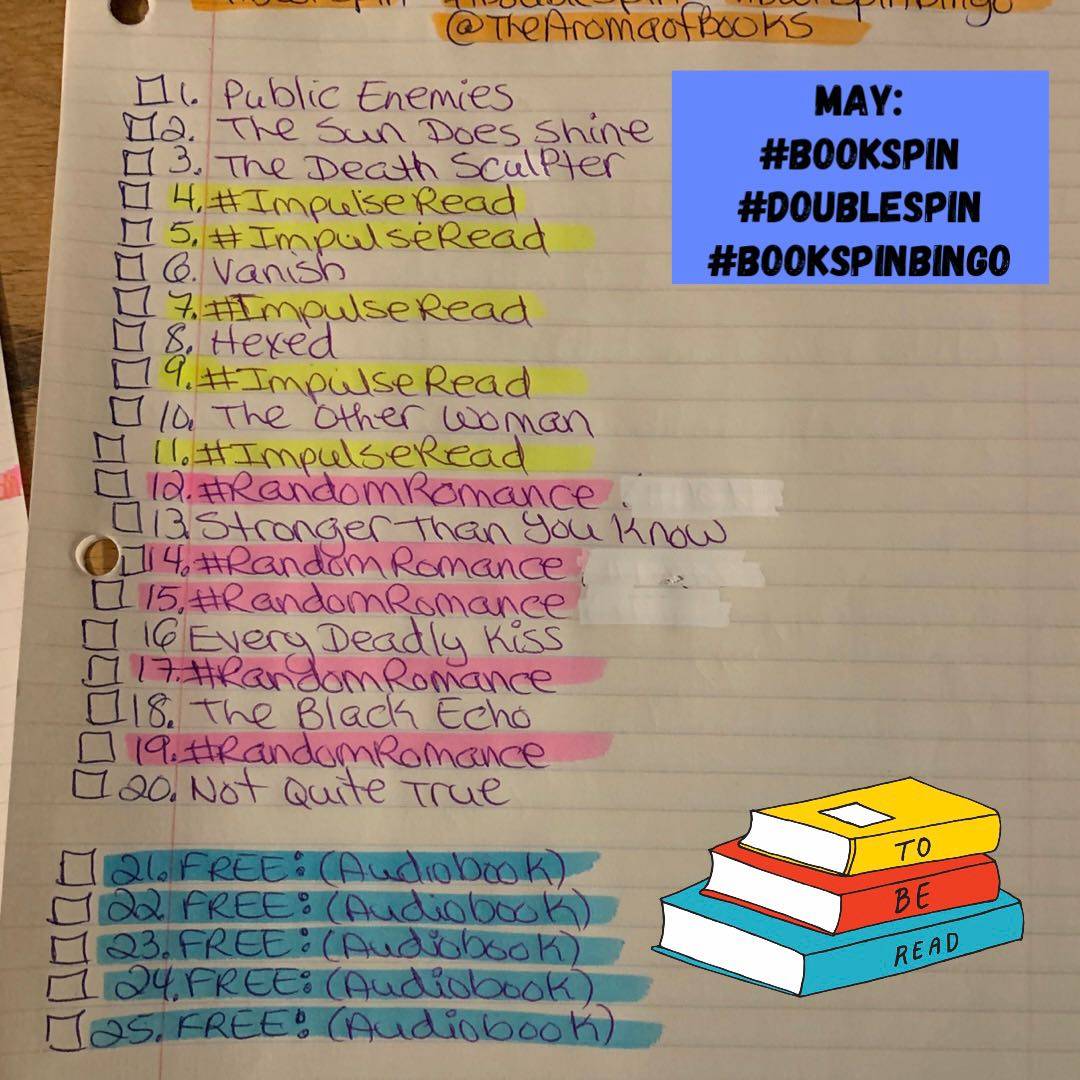 @TheAromaofBooks
1. Public Enemies
2. The Sun Does Shine
3. The Death Sculpter
4. #ImpulseRead
5. #ImpulseRead
6. Vanish
7. #ImpulseRead
8. Hexed
9. #ImpulseRead
10. The Other Woman
11. #ImpulseRead
12. #RandomRomance
13. Stronger Than You Know
14. #RandomRomance
15. #RandomRomance
16 Every Deadly Kiss
17. #RandomRomance
18. The Black Echo
19. #RandomRomance
20. Not Quite True
21. FREE: (Audiobook)
22. FREE: (Audiobook)
23. FREE: (Audiobook)
24. FREE: (Audiobook)
25. FREE: (Audiobook)
MAY:
#BOOKSPIN
#DOUBLESPIN
#BOOKSPINBINGO
TO
BE
READ